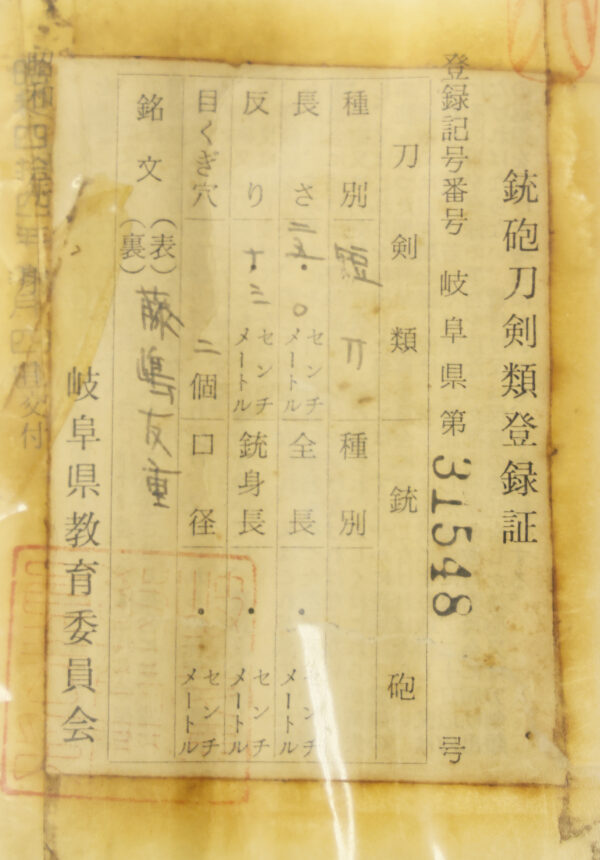 銃砲刀剣類登録証
登録記号番号 岐阜県第31548号
刀剣類 銃砲
種別 短刀 種別
長さ 二五・〇センチメートル 全長 ・ センチメートル
反り ・三センチメートル 銃身長 ・ センチメートル
目くぎ穴 二個 口径 ・ センチメートル
銘文 (表) 藤嶋友重
(裏)
岐阜県教育委員会
交付